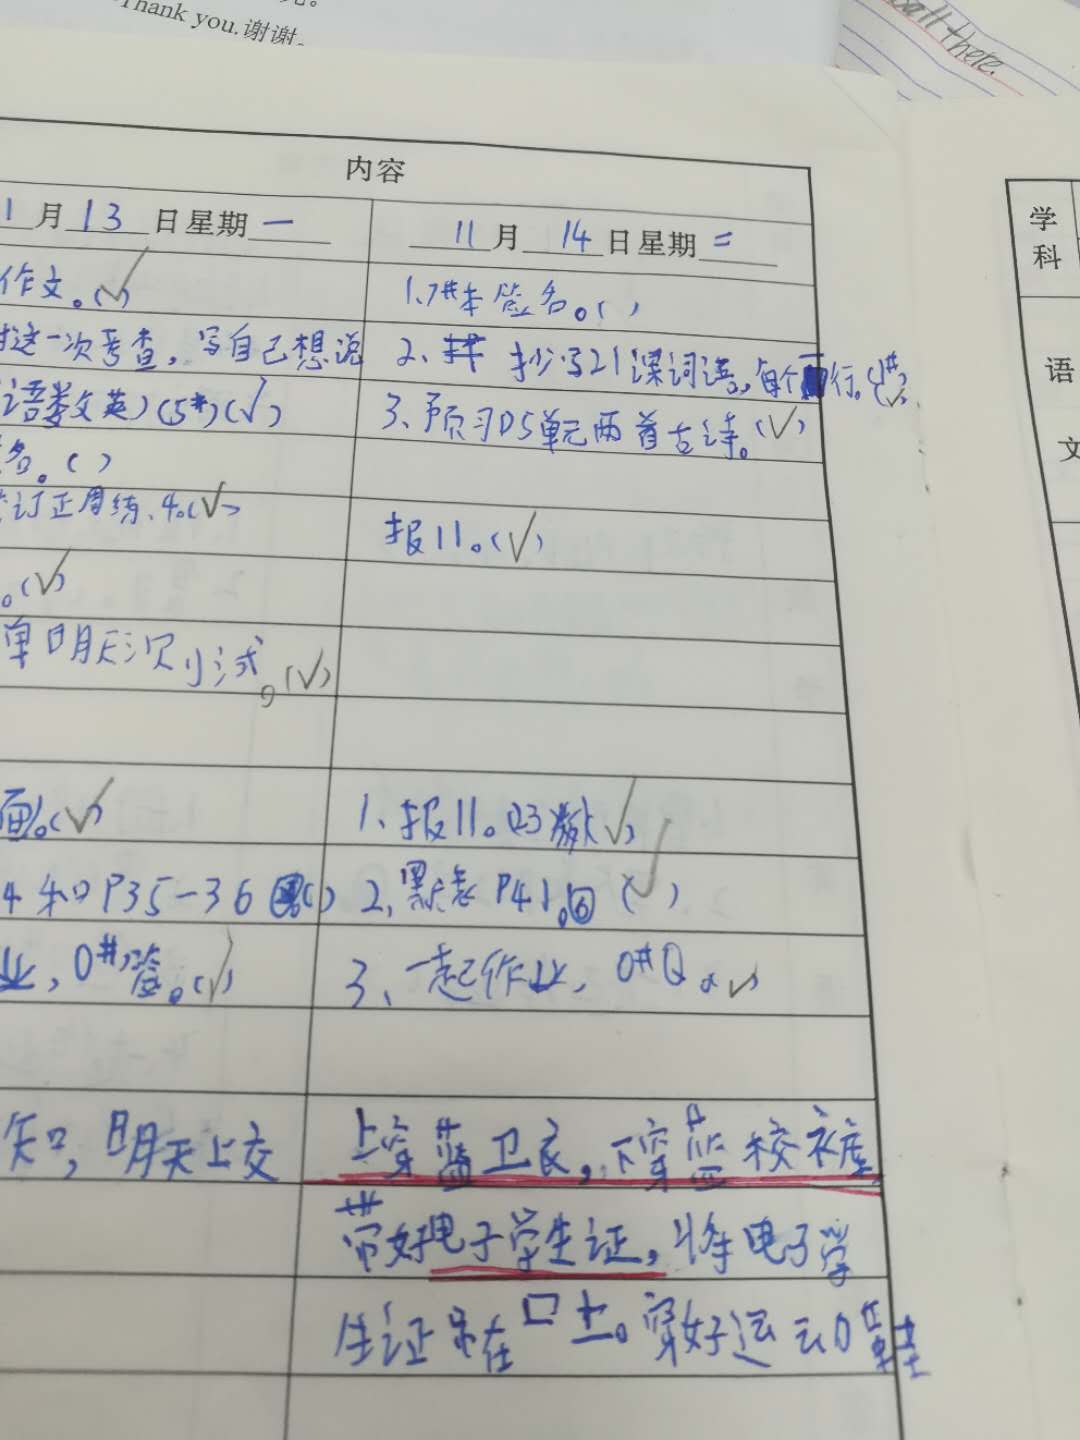 Thank you.谢谢。
ball there.
内容
1月13日星期一
11月14日星期二
作文。(√)
1、7#本签名。( )
这一次考查，写自己想说
2、抄写21课词语，每个行。(1#√)
语数英)(5#)(√)
3、预习D5单元两首古诗。(√)
名。( )
订正周练、4。(√)
报11。(√)
。(√)
单明天次小试。(√)
面。(√)
1、报11。Q3数(√)
4和P35-36( )
2、默表P41。⑥(√)
业，0#签。(√)
3、一起作业，0#Q。√
知，明天上交
上穿蓝卫衣，下穿蓝校裤，
带好电子学生证，将电子学
生证吊在口上。穿好运动鞋
学科
语
文